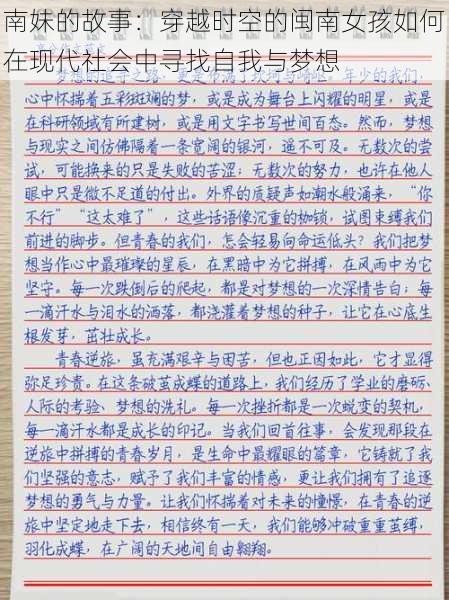 南妹的故事：穿越时空的闽南女孩如何
在现代社会中寻找自我与梦想
梦想的追寻之路，更是布满了坎坷与崎岖。年少的我们，
心中怀揣着五彩斑斓的梦，或是成为舞台上闪耀的明星，或是
在科研领域有所建树，或是用文字书写世间百态。然而，梦想
与现实之间仿佛隔着一条宽阔的银河，遥不可及。无数次的尝
试，可能换来的只是失败的苦涩；无数次的努力，也许在他人
眼中只是微不足道的付出。外界的质疑声如潮水般涌来，“你
不行”“这太难了”，这些话语像沉重的枷锁，试图束缚我们
前进的脚步。但青春的我们，怎会轻易向命运低头？我们把梦
想当作心中最璀璨的星辰，在黑暗中为它拼搏，在风雨中为它
坚守。每一次跌倒后的爬起，都是对梦想的一次深情告白；每
一滴汗水与泪水的洒落，都浇灌着梦想的种子，让它在心底生
根发芽，茁壮成长。
青春逆旅，虽充满艰辛与困苦，但也正因如此，它才显得
弥足珍贵。在这条破茧成蝶的道路上，我们经历了学业的磨砺、
人际的考验、梦想的洗礼。每一次挫折都是一次蜕变的契机，
每一滴汗水都是成长的印记。当我们回首往事，会发现那段在
逆旅中拼搏的青春岁月，是生命中最耀眼的篇章，它铸就了我
们坚强的意志，赋予了我们丰富的情感，更让我们拥有了追逐
梦想的勇气与力量。让我们怀揣着对未来的憧憬，在青春的逆
旅中坚定地走下去，相信终有一天，我们能够冲破重重茧缚，
羽化成蝶，在广阔的天地间自由翱翔。